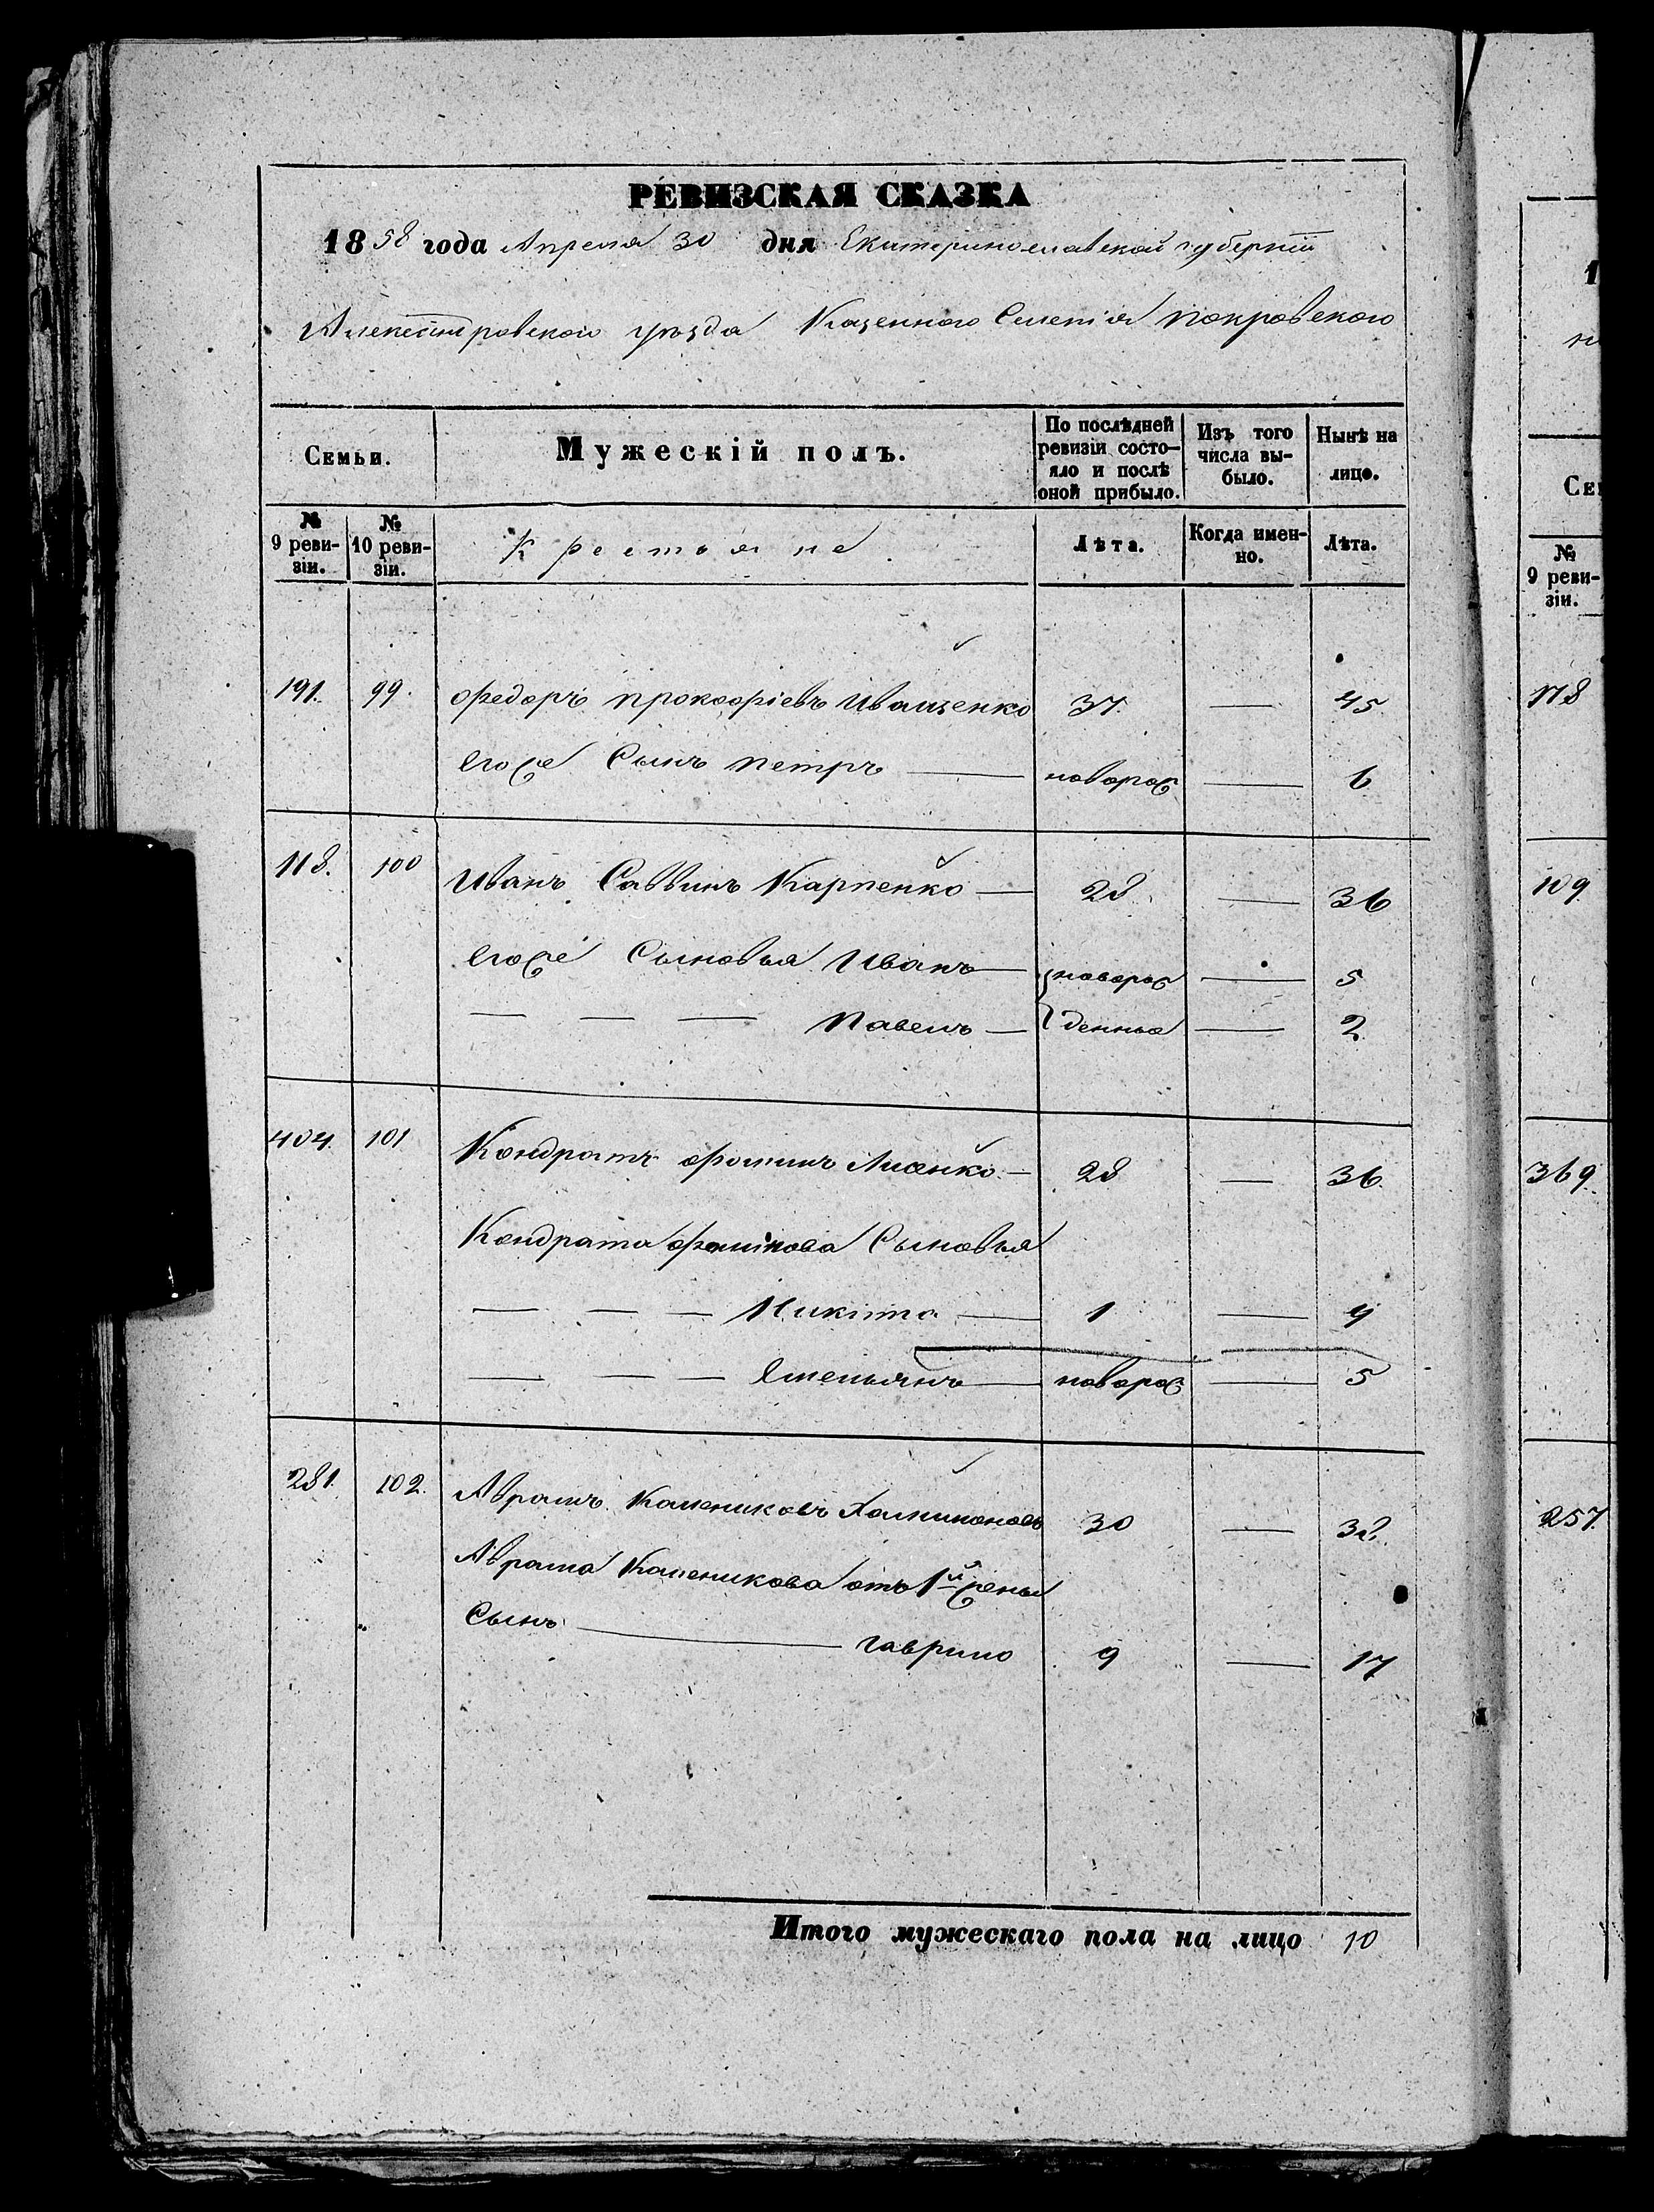 РЕВИЗСКАЯ СКАЗКА
1858 года Апреля 30 дня Екатеринославской губернии
Александровского уезда Казенного Селенія Покровского
Семьи. Мужескій полъ. По послѣдней ревизіи состо-яло и послѣ оной прибыло. Изъ того числа вы-было. Нынѣ на лицо.
№ 9 реви-зіи. № 10 реви-зіи. Крестьяне Лѣта. Когда имен-но. Лѣта.
191. 99. Федоръ Прокофіевъ Иващенко 37. — 45
Егоже Сынъ Петръ — новорож — 6
118. 100 Иванъ Саввинъ Карпенко — 28 — 36
Егоже Сыновья Иванъ — новорож — 5
— — — Павелъ — денные — 2
404. 101 Кондратъ Фоминъ Лисенко — 28 — 36
Кондрата Фомінова Сыновья
— — — Никита — 1 — 9
— — — Емельянъ — новорож — 5
281. 102. Аврамъ Калениковъ 30 — 38
Аврама Каленикова отъ 1й жены
Сынъ — Гаврило 9 — 17
Итого мужескаго пола на лицо 10
1
Се
№ 9 реви-зіи.
178
109
369.
257.